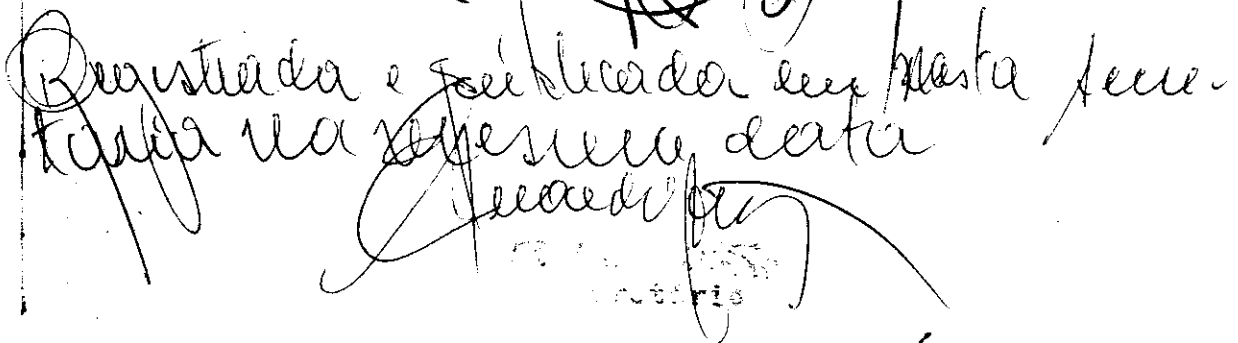 Registrada e publicada em nesta Secre-
taria na mesma data